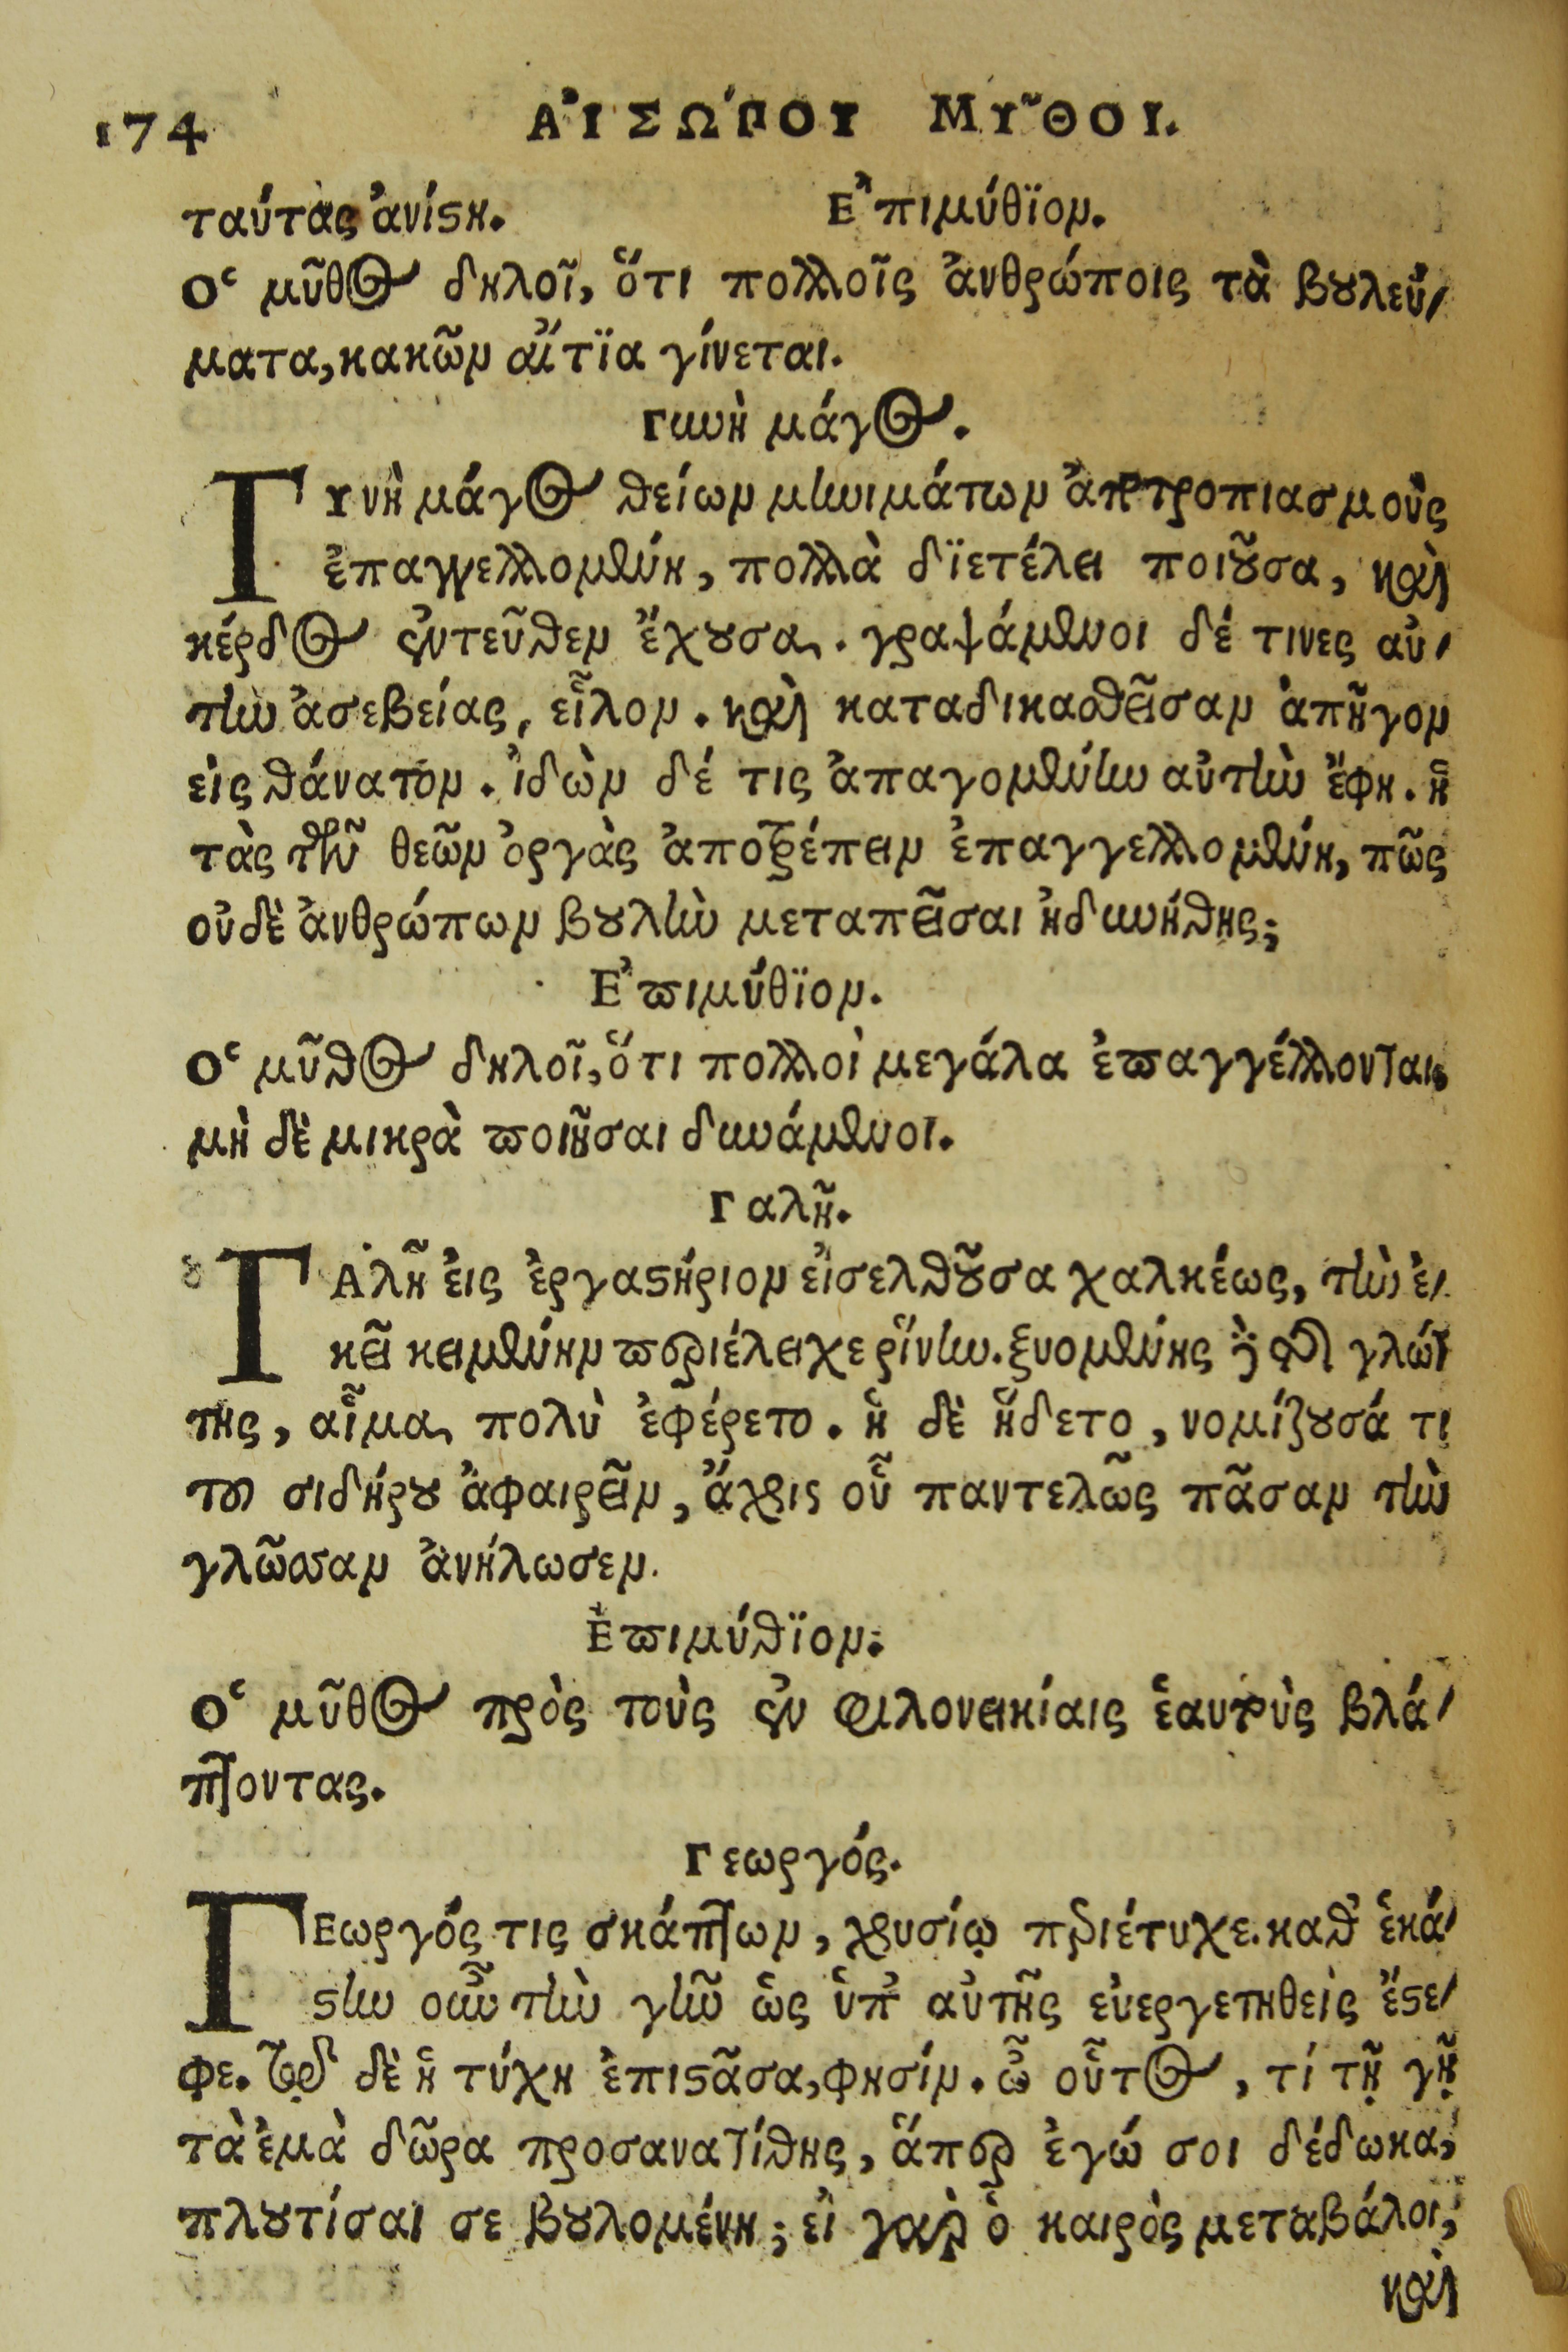 174 ΑἸΣΩ´ΠΟΥ ΜΥ͂ΘΟΙ.
ταύτας ἀνίϛη. Ἐπιμύθϊον.
Ὁ μῦθος δηλοῖ, ὅτι πολλοῖς ἀνθρώποις τὰ βȣλεύ-
ματα, κακῶν αἴτϊα γίνεται.
Γυνὴ μάγος.
ΓΥνὴ μάγος θείων μηνιμάτων ἀποτροπιασμοὺς
ἐπαγγελλομένη, πολλὰ δϊετέλει ποιȣ͂σα, καὶ
κέρδος ἐντεῦθεν ἔχȣσα. γραψάμενοι δέ τινες αὐ-
τὴν ἀσεβείας, εἷλον. καὶ καταδικασθεῖσαν ἀπῆγον
εἰς θάνατον. ἰδὼν δέ τις ἀπαγομένην αὐτὴν ἔφη. ἡ
τὰς τῶν θεῶν ὀργὰς ἀποτρέπειν ἐπαγγελλομένη, πῶς
οὐδὲ ἀνθρώπων βȣλὴν μεταπεῖσαι ἠδυνήθης;
Ἐπιμύθϊον.
Ὁ μῦθος δηλοῖ, ὅτι πολλοὶ μεγάλα ἐπαγγέλλονται,
μὴ δὲ μικρὰ ποιῆσαι δυνάμενοι.
Γαλῆ.
ΓΑλῆ εἰς ἐργαϛήριον εἰσελθȣ͂σα χαλκέως, τὴν ἐ-
κεῖ κειμένην περιέλειχε ῥίνην. ξυομένης δὲ τῆς γλώτ
της, αἷμα πολὺ ἐφέρετο. ἡ δὲ ἥδετο, νομίζȣσά τι
τοῦ σιδήρȣ ἀφαιρεῖν, ἄχρις οὗ παντελῶς πᾶσαν τὴν
γλῶσσαν ἀνήλωσεν.
Ἐπιμύθϊον.
Ὁ μῦθος πρὸς τοὺς ἐν φιλονεικίαις ἑαυτοὺς βλά-
πτοντας.
Γεωργός.
ΓΕωργός τις σκάπτων, χρυσίῳ περιέτυχε. καθ' ἑκά-
ϛην οὖν τὴν γῆν ὡς ὑπ' αὐτῆς εὐεργετηθεὶς ἔϛε-
φε. τῷ δὲ ἡ τύχη ἐπιϛᾶσα, φησίν. ὦ οὗτος, τί τῇ γῇ
τὰ ἐμὰ δῶρα προσανατίθης, ἅπερ ἐγώ σοι δέδωκα,
πλȣτίσαι σε βȣλομένη; εἰ γὰρ ὁ καιρὸς μεταβάλοι,
καὶ